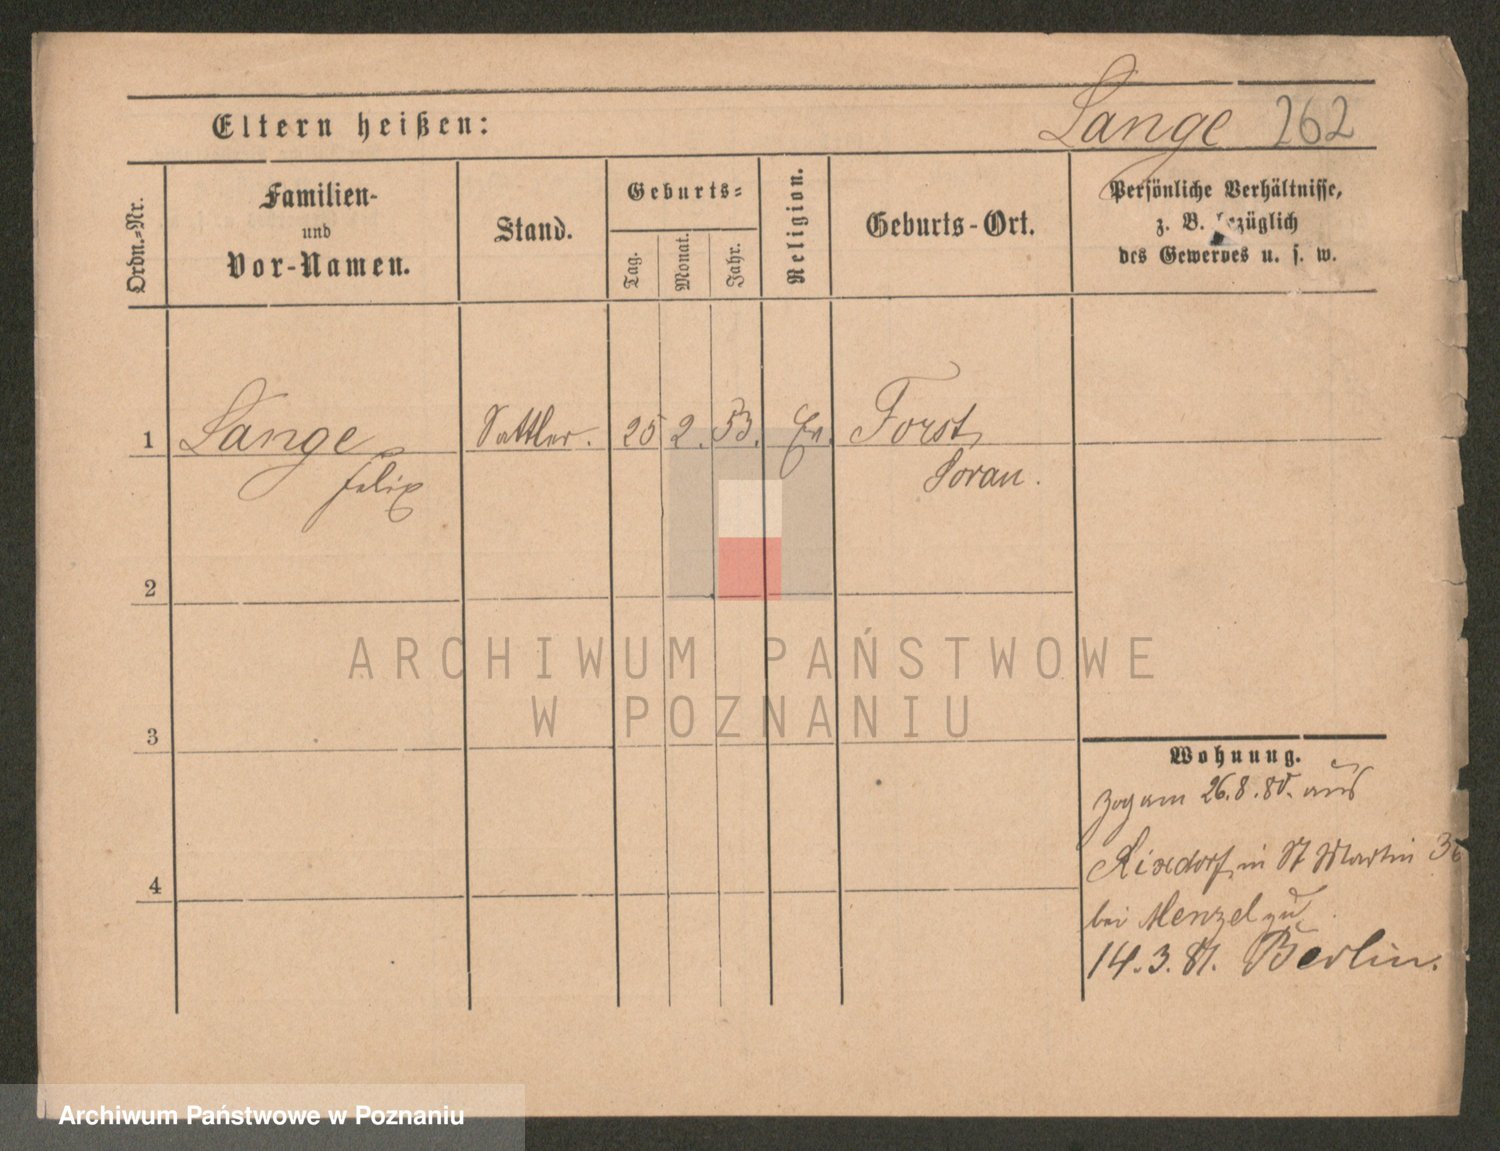 Eltern heißen:
Lange 262
Ordn.-Nr.
Familien-
und
Vor-Namen.
Stand.
Geburts-
Tag.
Monat.
Jahr.
Religion.
Geburts-Ort.
Persönliche Verhältnisse,
z. B. bezüglich
des Gewerbes u. s. w.
1 Lange Sattler. 25 2. 53. Ev. Forst
Felix Sorau.
2
3
4
ARCHIWUM PAŃSTWOWE
W POZNANIU
Wohnung.
zog am 26.8.80. aus
Rixdorf, in St Martin
bei Menzel zu
14.3.81. Berlin.
Archiwum Państwowe w Poznaniu